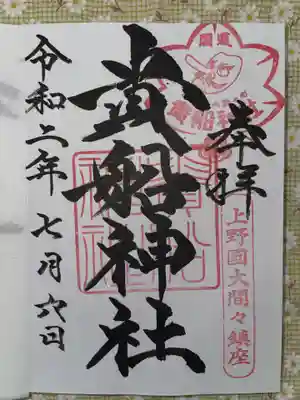 奉拝
上野國大間々鎮座
貴船神社
貴船神社
令和二年七月六日